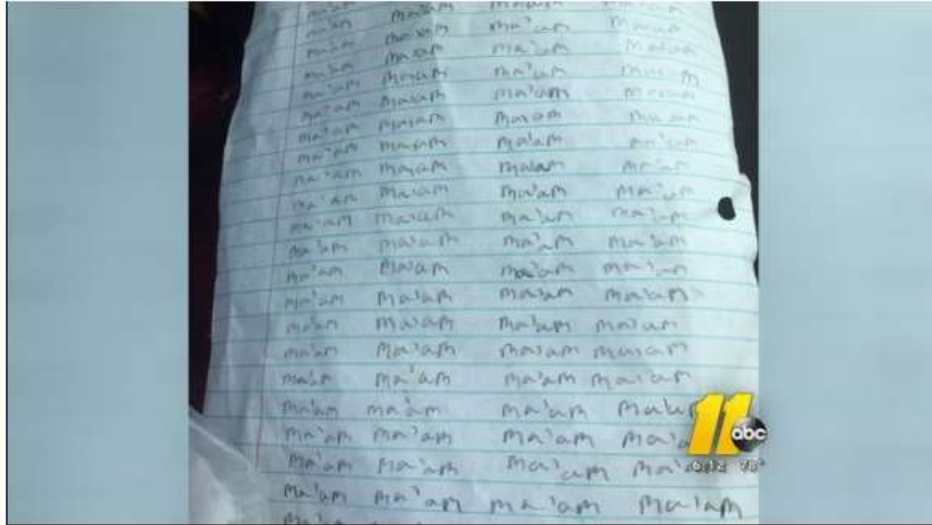 ma'am ma'am ma'am
ma'am ma'am ma'am ma'am
ma'am ma'am ma'am ma'am
ma'am ma'am ma'am ma'am
ma'am ma'am ma'am ma'am
ma'am ma'am ma'am ma'am
ma'am ma'am ma'am ma'am
ma'am ma'am ma'am ma'am
ma'am ma'am ma'am ma'am
ma'am ma'am ma'am ma'am
ma'am ma'am ma'am ma'am
ma'am ma'am ma'am ma'am
ma'am ma'am ma'am ma'am
ma'am ma'am ma'am ma'am
ma'am ma'am ma'am ma'am
ma'am ma'am ma'am ma'am
ma'am ma'am ma'am ma'am
ma'am ma'am ma'am
ma'am ma'am ma'am
ma'am ma'am ma'am
ma'am ma'am ma'am ma'am
11 abc
6:12 78°